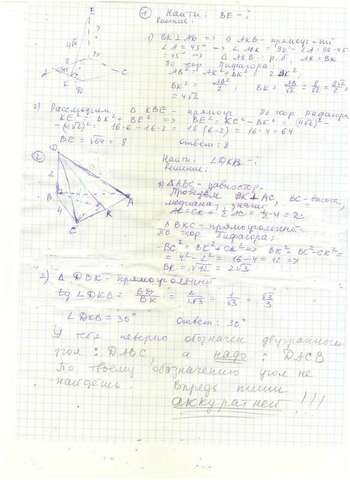 ① Найти: BE - ?
Решение:
1) BK⊥AD => △AKB - прямоуг-ый
∠A = 45° => ∠ABK = 90° -
45° => △AKB - р.б. AK = BK
По теор. Пифагора
AB² = AK² + BK² = 2BK²
BK² = AB²/2
= 4√2
2) Рассмотрим △KBE - прямоуг. По теор. Пифагора
KE² = BK² + BE² => BE² = KE² - BK² =
-(4√2)² = 16·6 - 16·2 = 16(6-2) = 16·4 = 64
BE = √64 = 8 Ответ: 8
② Найти: ∠DKB - ?
Решение:
1) △ABC - равностор.
Проведём BK⊥AC, BK - высота,
медиана, значит
AK = CK = ½AC = ½·4 = 2
△BKC - прямоугольный
По теор. Пифагора:
BC² = BK² + CK² => BK² = BC² - CK² =
= 4² - 2² = 16 - 4 = 12 =>
BK = √12 = 2√3
2) △DBK - прямоугольный
tg ∠DKB = BD/BK = 2/2√3 = 1/√3 = √3/3
∠DKB = 30° Ответ: 30°
У тебя неверно обозначен двугранный
угол: DABC, а надо: DACB
По твоему обозначению угол не
найдёшь. Впредь пиши
аккуратней!!!